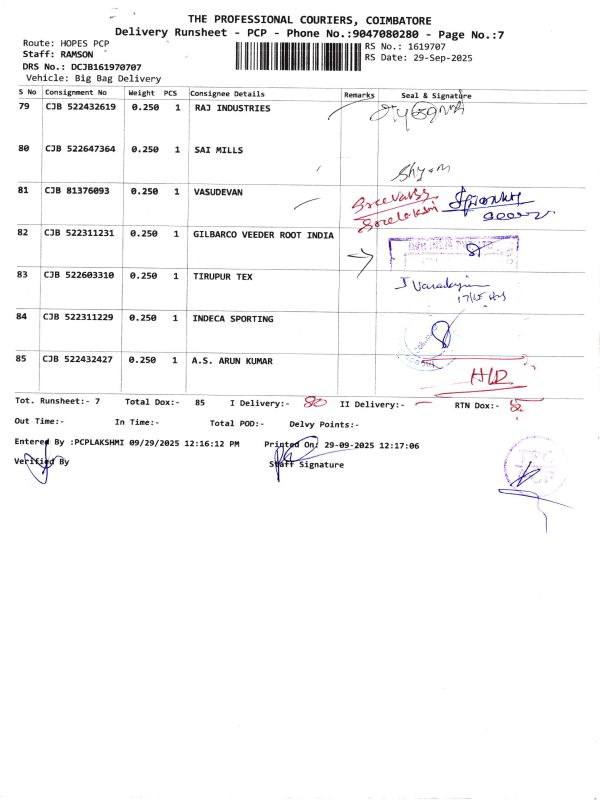 THE PROFESSIONAL COURIERS, COIMBATORE
Delivery Runsheet - PCP - Phone No.:9047080280 - Page No.:7
Route: HOPES PCP
Staff: RAMSON
DRS No.: DCJB161970707
Vehicle: Big Bag Delivery
RS No.: 1619707
RS Date: 29-Sep-2025
S No Consignment No Weight PCS Consignee Details Remarks Seal & Signature
79 CJB 522432619 0.250 1 RAJ INDUSTRIES
80 CJB 522647364 0.250 1 SAI MILLS
Shyam
81 CJB 81376093 0.250 1 VASUDEVAN
82 CJB 522311231 0.250 1 GILBARCO VEEDER ROOT INDIA
83 CJB 522603310 0.250 1 TIRUPUR TEX
84 CJB 522311229 0.250 1 INDECA SPORTING
85 CJB 522432427 0.250 1 A.S. ARUN KUMAR
H/D
Tot. Runsheet:- 7 Total Dox:- 85 I Delivery:- 80 II Delivery:- — RTN Dox:-
Out Time:- In Time:- Total POD:- Delvy Points:-
Entered By :PCPLAKSHMI 09/29/2025 12:16:12 PM Printed On: 29-09-2025 12:17:06
Verified By Staff Signature